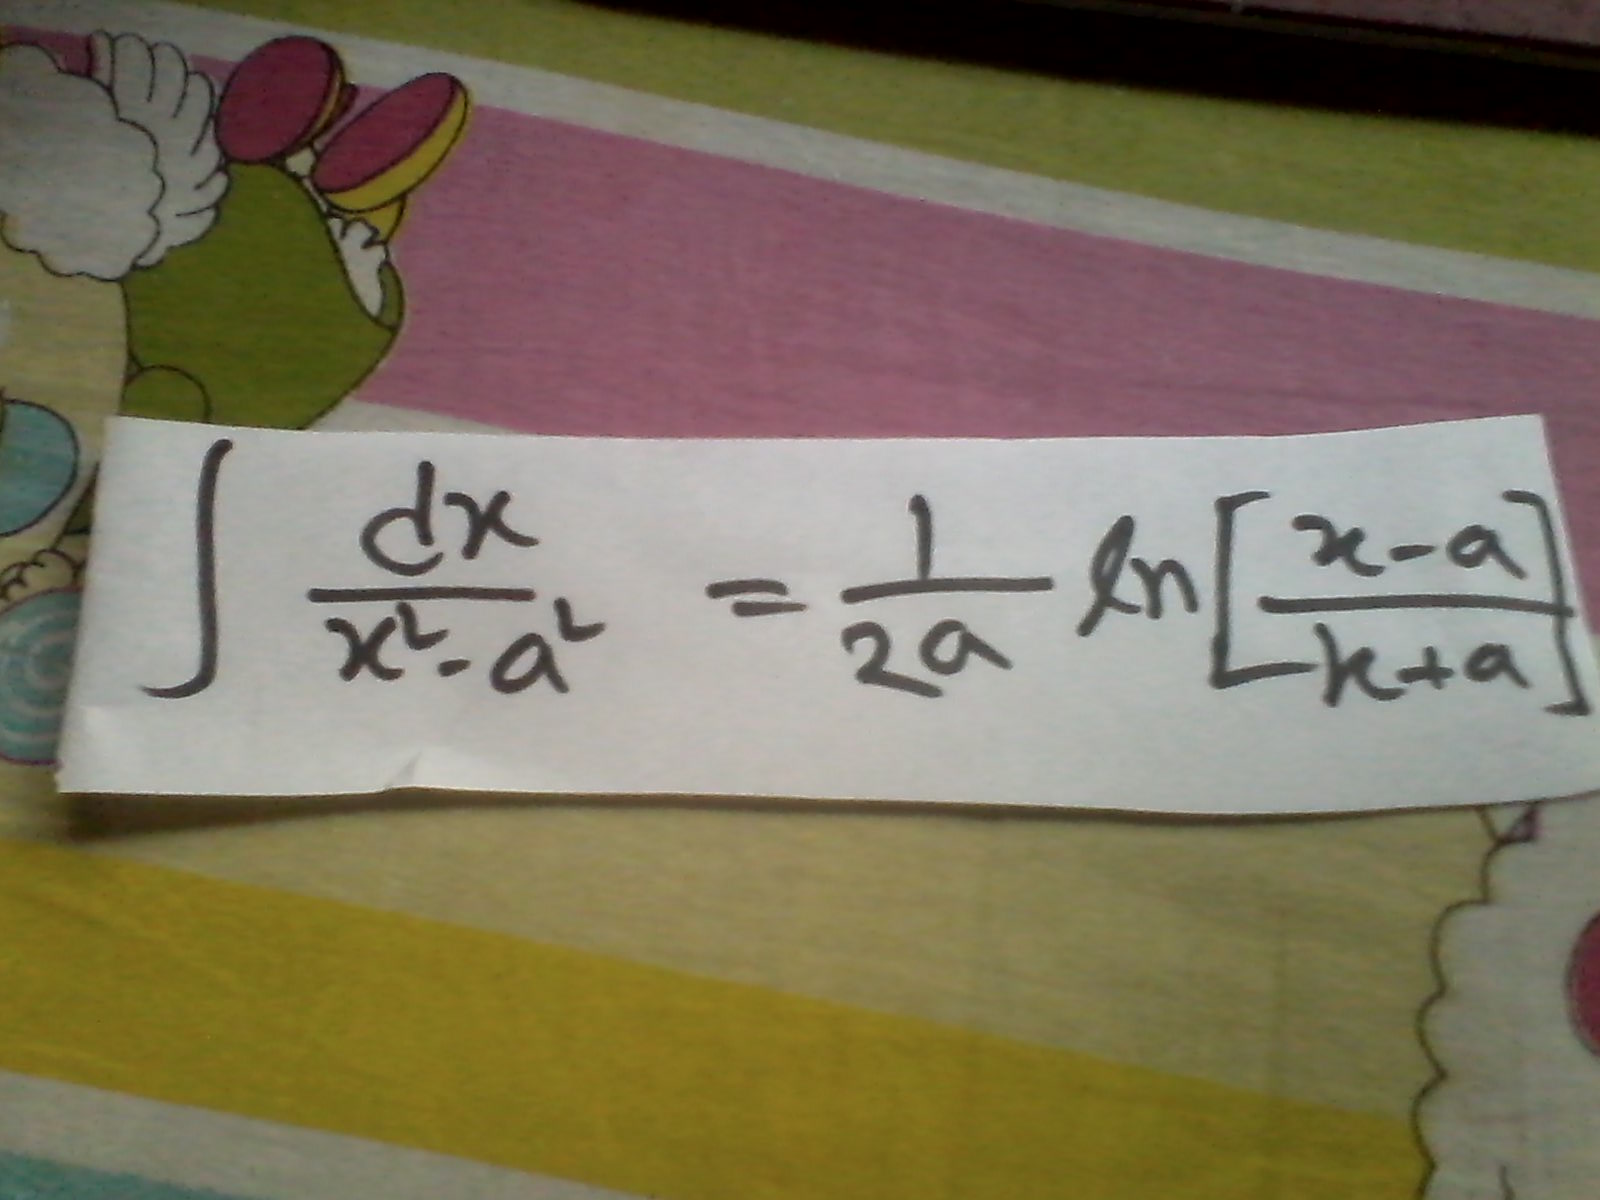 ∫ dx/(x²-a²) = 1/(2a) ln[(x-a)/(x+a)]